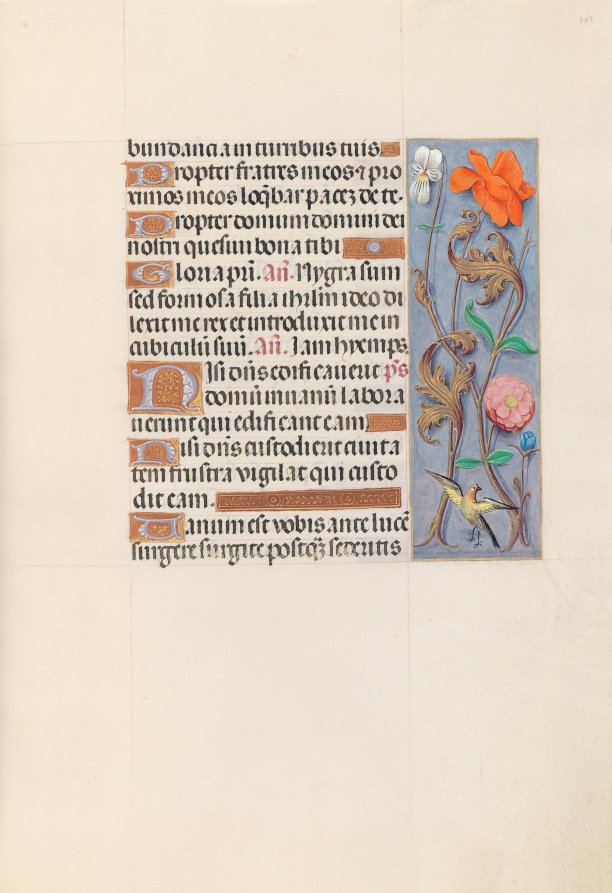 149
bundancia in turribus tuis
Propter fratres meos ⁊ pro
ximos meos loq̃bar pacẽ de te.
Propter domum domini dei
nostri quesiui bona tibi
Gloria pr̃i. Añ. Nygra sum
sed formosa filia ihrl̃m ideo di
lexit me rex et introduxit me in
cubiculũ suũ. Añ. Iam hyemps.
Nisi dñs edificauerit p̃s
domũ in uanũ labora
uerunt qui edificant eam
Nisi dñs custodierit ciuita
tem frustra vigilat qui custo
dit eam.
Uanum est vobis ante lucẽ
surgere surgite postq̃ sederitis